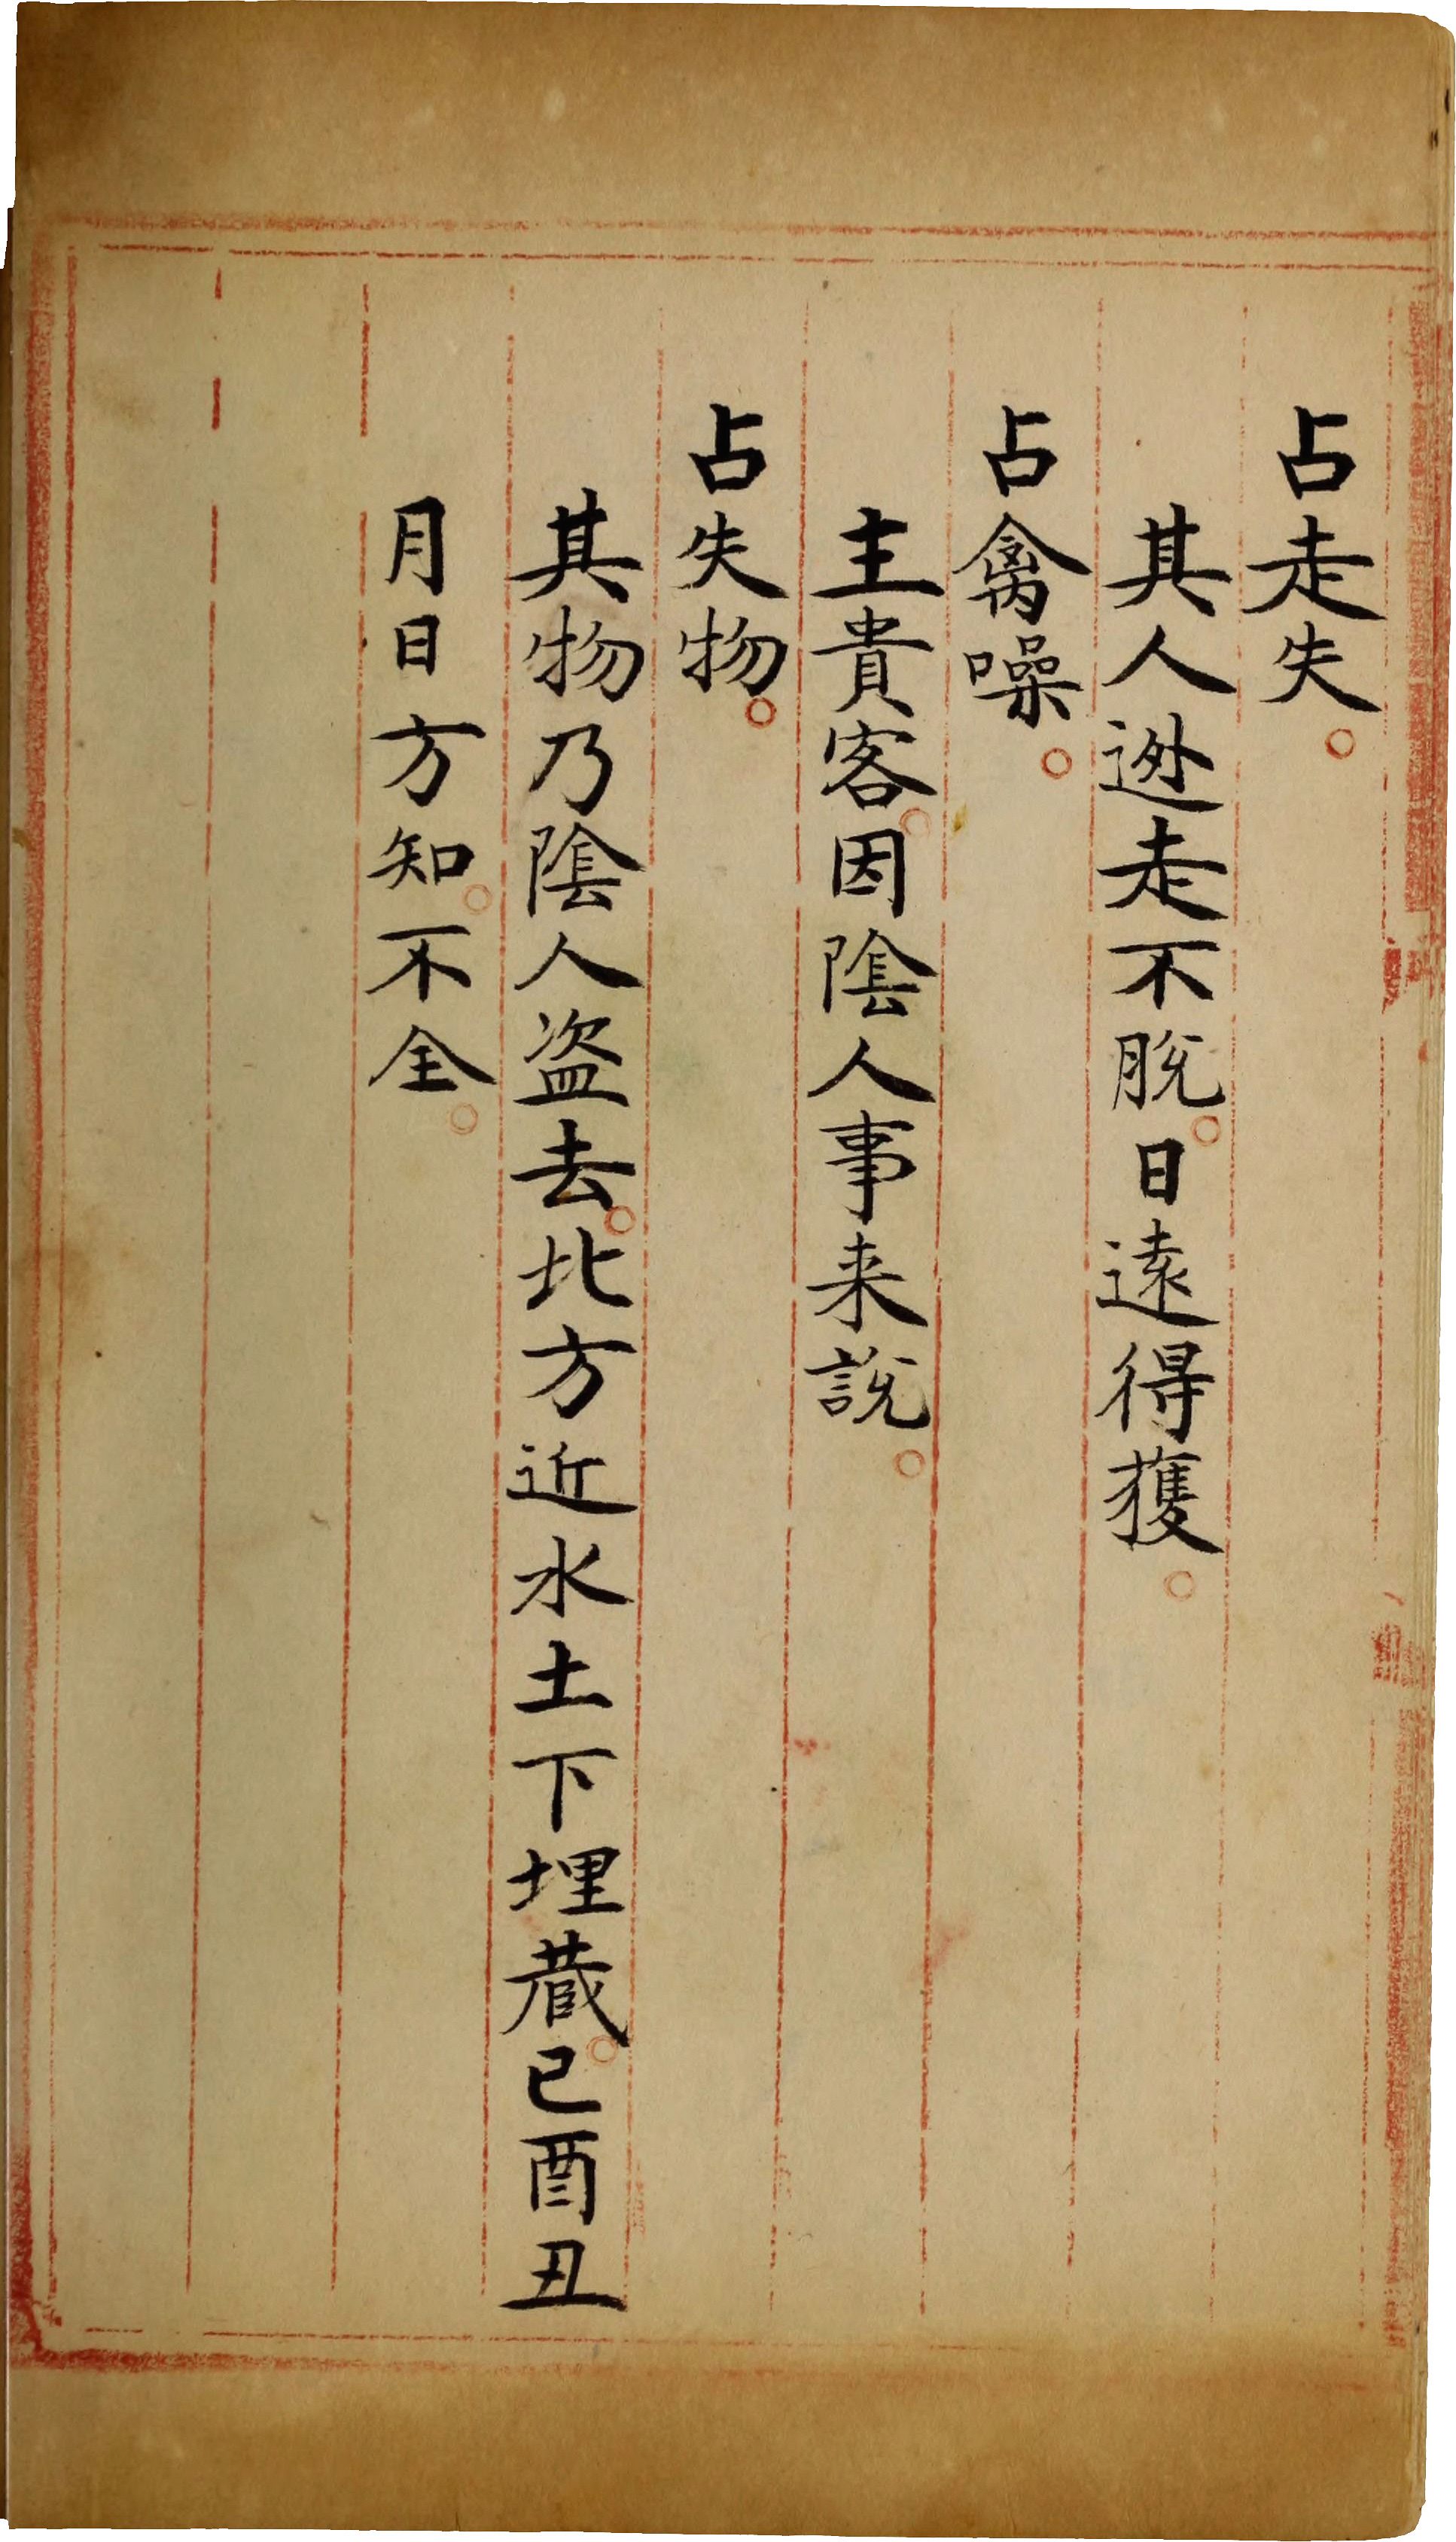 占走失。
其人逃走不脫。日遠得獲。
占禽噪。
主貴客。因陰人事来說。
占失物。
其物乃陰人盗去。北方近水土下埋蔵。已酉丑
月日方知。不全。